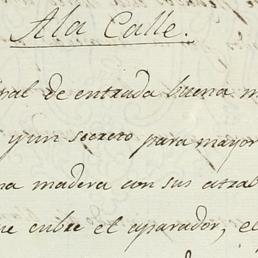 A la Calle.
de entrada buena
y un secreto para mayor
madera con sus
cubre el aparador, el